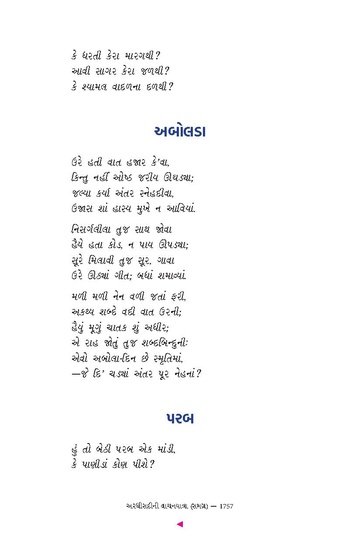 કે ધરતી કેરા મારગથી?
આવી સાગર કેરા જળથી?
કે શ્યામલ વાદળના દળથી?
અબોલડા
ઉરે હતી વાત હજાર કે'વા,
કિન્તુ નહીં ઓષ્ઠ જરીય ઊઘડ્યા;
જલ્યા કર્યા અંતર સ્નેહદીવા,
ઉજાસ શાં હાસ્ય મુખે ન આવિયાં.
નિસર્ગલીલા તુજ સાથ જોવા
હૈયે હતા કોડ, ન પાય ઊપડ્યા;
સૂરે મિલાવી તુજ સૂર, ગાવા
ઉરે ઊઠ્યાં ગીત; બધાં શમાવ્યાં.
મળી મળી નેન વળી જતાં ફરી,
અકથ્ય શબ્દે વદી વાત ઉરની;
હૈયું મૂગું ચાતક શું અધીર;
એ રાહ જોતું તુજ શબ્દબિન્દુની:
એવો અબોલા-દિન છે સ્મૃતિમાં,
—જે દિ' ચડ્યાં અંતર પૂર નેહનાં?
પરબ
હું તો બેઠી પરબ એક માંડી,
કે પાણીડાં કોણ પીશે?
અરધીસદીની વાચનયાત્રા (સમગ્ર) — 1757